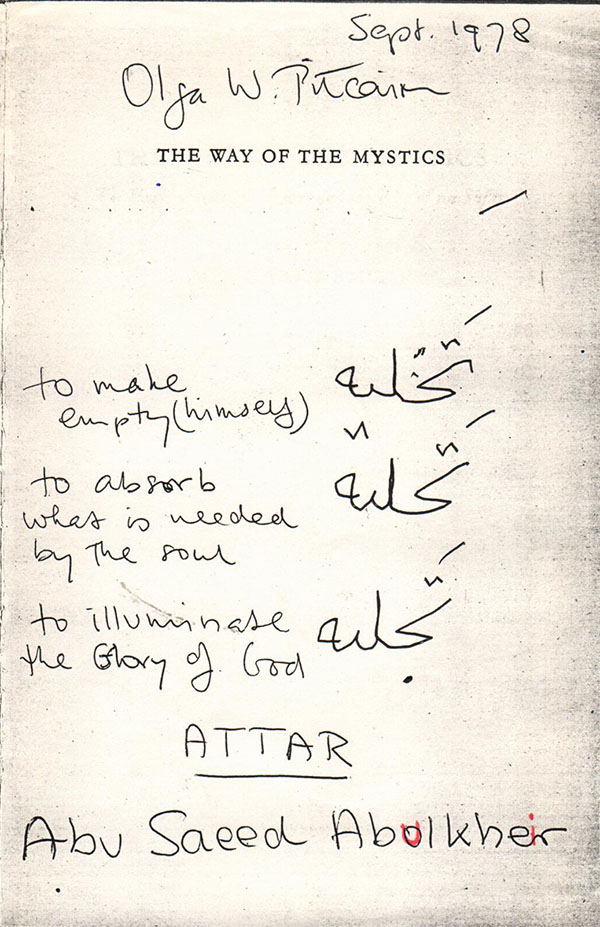 Sept. 1978
Olga W. Pitcairn
THE WAY OF THE MYSTICS
to make
empty (himself)
تَخليه
to absorb
what is needed
by the soul
تَحليه
to illuminate
the Glory of God
تَجليه
ATTAR
Abu Saeed Abulkheir